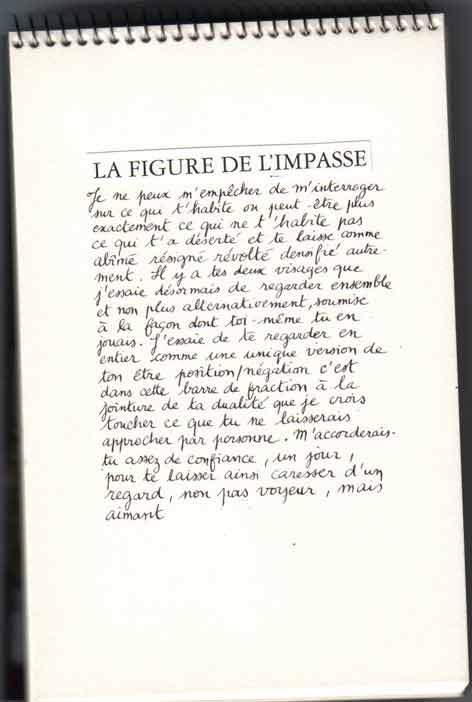 LA FIGURE DE L'IMPASSE
Je ne peux m'empêcher de m'interroger
sur ce qui t'habite ou peut-être plus
exactement ce qui ne t'habite pas
ce qui t'a déserté et te laisse comme
abîmé résigné révolté densifié autre-
ment. Il y a tes deux visages que
j'essaie désormais de regarder ensemble
et non plus alternativement, soumise
à la façon dont toi-même tu en
jouais. J'essaie de te regarder en
entier comme une unique version de
ton être position/négation c'est
dans cette barre de fraction à la
jointure de ta dualité que je crois
toucher ce que tu ne laisserais
approcher par personne. M'accorderais-
tu assez de confiance, un jour,
pour te laisser ainsi caresser d'un
regard, non pas voyeur, mais
aimant